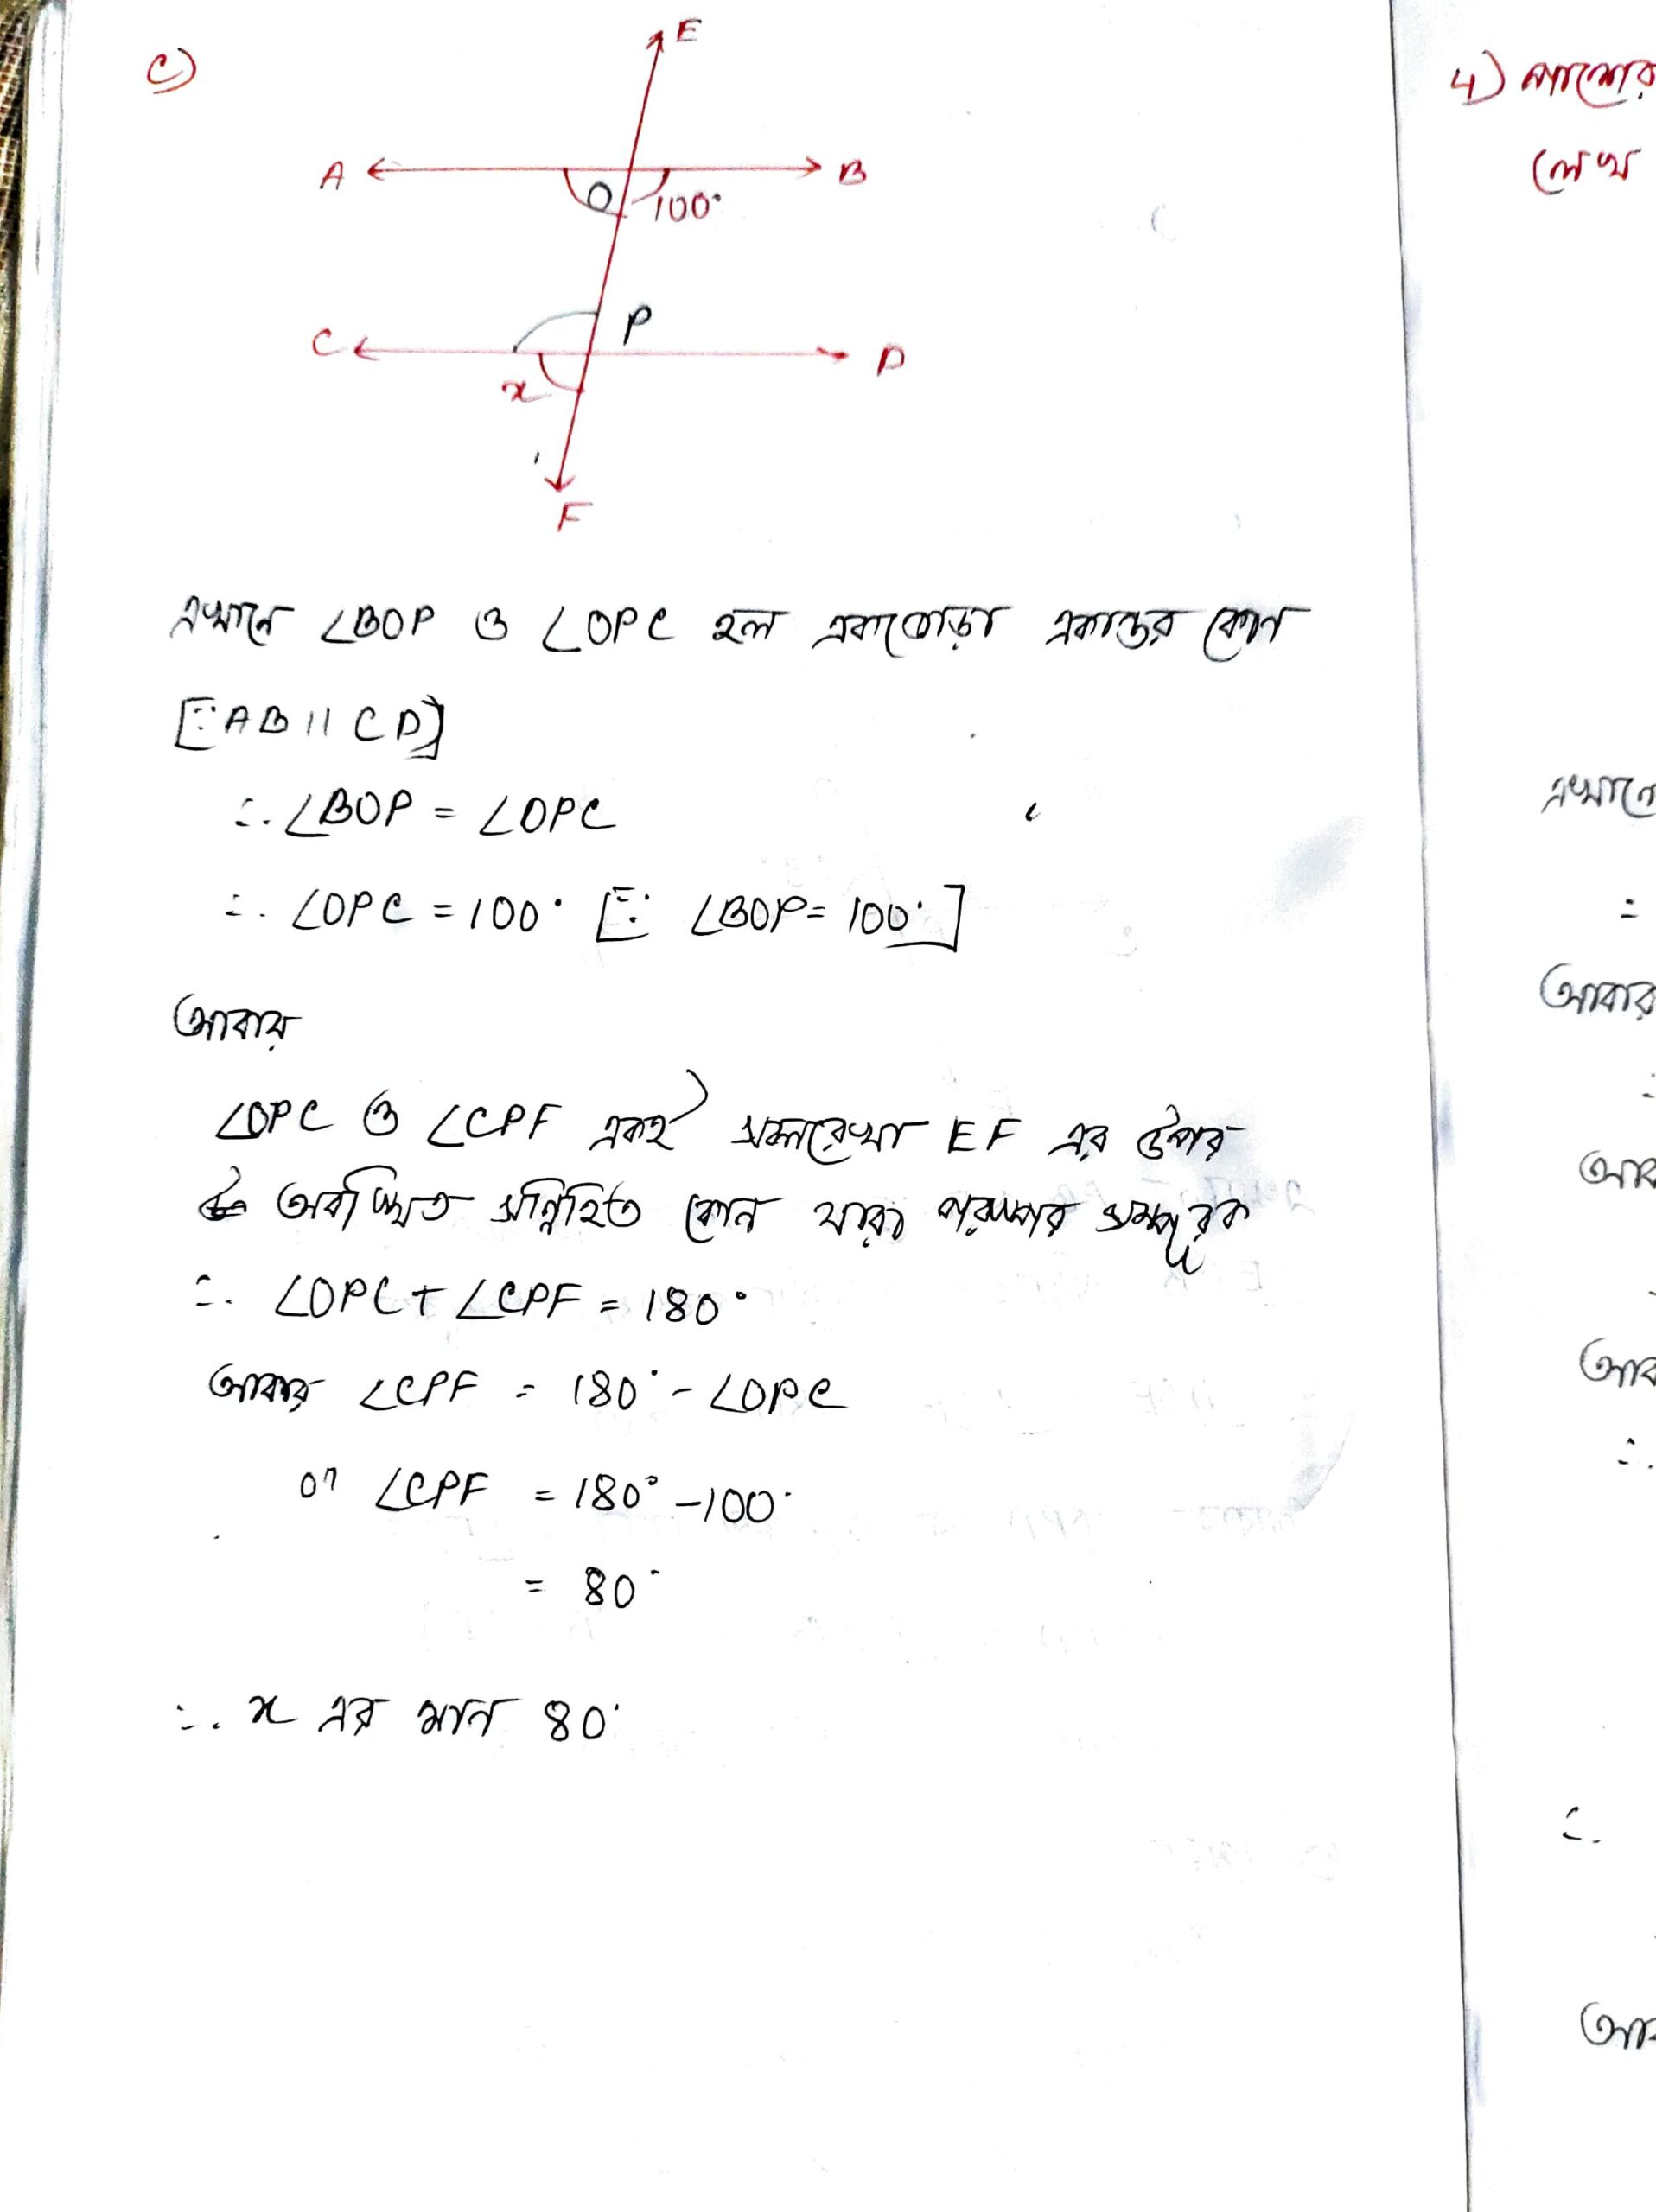 c)
E
A
B
O
100°
P
C
D
x
F
এখানে ∠BOP ও ∠OPC হল একজোড়া একান্তর কোন
[∵AB || CD]
∴ ∠BOP = ∠OPC
∴ ∠OPC = 100° [∵ ∠BOP= 100°]
আবার
∠OPC ও ∠CPF একই সরলরেখা EF এর উপর
অবস্থিত সন্নিহিত কোন যারা পরস্পর সম্পূরক
∴ ∠OPC + ∠CPF = 180°
আবার ∠CPF = 180° - ∠OPC
or ∠CPF = 180° - 100°
= 80°
∴ x এর মান 80°
4) পাশের
লেখ
এখানে
=
আবার
∴